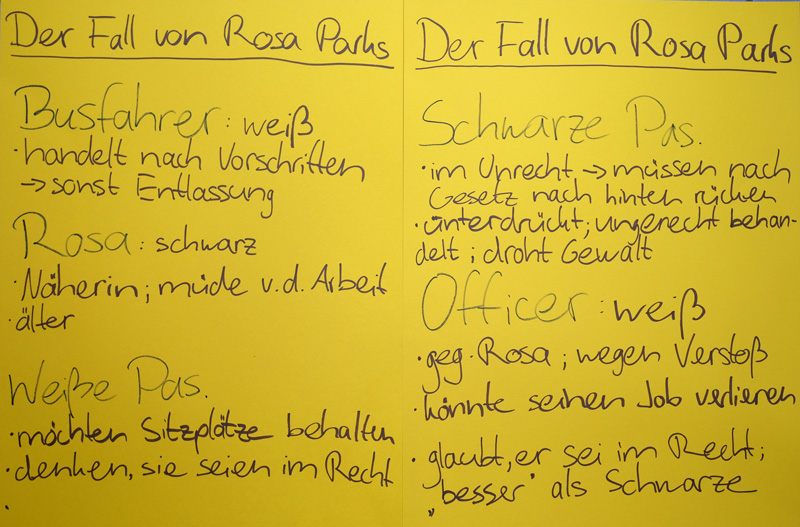 Der Fall von Rosa Parks
Busfahrer: weiß
· handelt nach Vorschriften
→ sonst Entlassung
Rosa: schwarz
· Näherin; müde v.d. Arbeit
· älter
Weiße Pas.
· möchten Sitzplätze behalten
· denken, sie seien im Recht
·
Der Fall von Rosa Parks
Schwarze Pas.
· im Unrecht → müssen nach
Gesetz nach hinten rücken
· unterdrückt; ungerecht behan-
delt; droht Gewalt
Officer: weiß
· geg. Rosa; wegen Verstoß
· könnte seinen Job verlieren
· glaubt, er sei im Recht;
„besser" als Schwarze